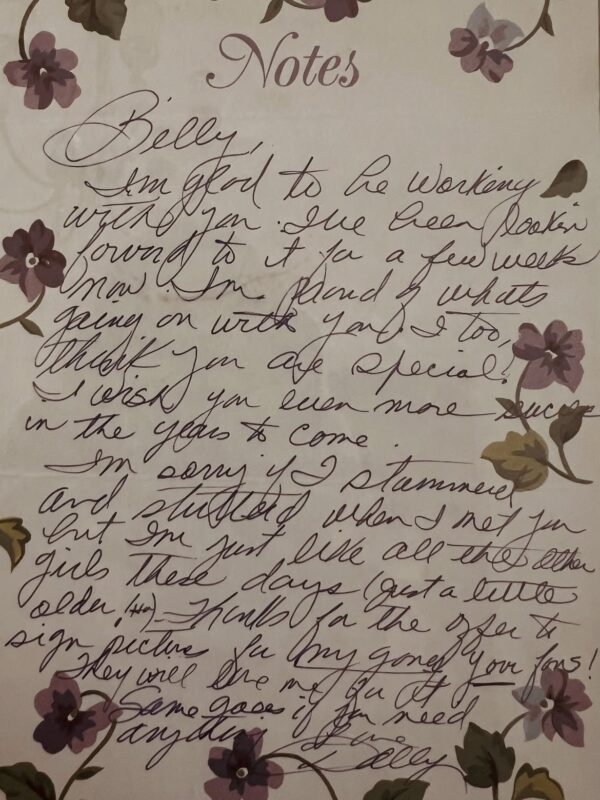 Notes
Billy,
I'm glad to be working
with you. I've been lookin
forward to it for a few weeks
now. I'm proud of whats
going on with you. I too,
think you are special!
I wish you even more succes
in the years to come.
I'm sorry if I stammered
and stutterd when I met you
but I'm just like all the other
girls these days (just a little
older. Ha). Thanks for the offer to
sign pictures for my gang your fans!
They will love me for it
Same goes if you need
anything
Love
Dolly